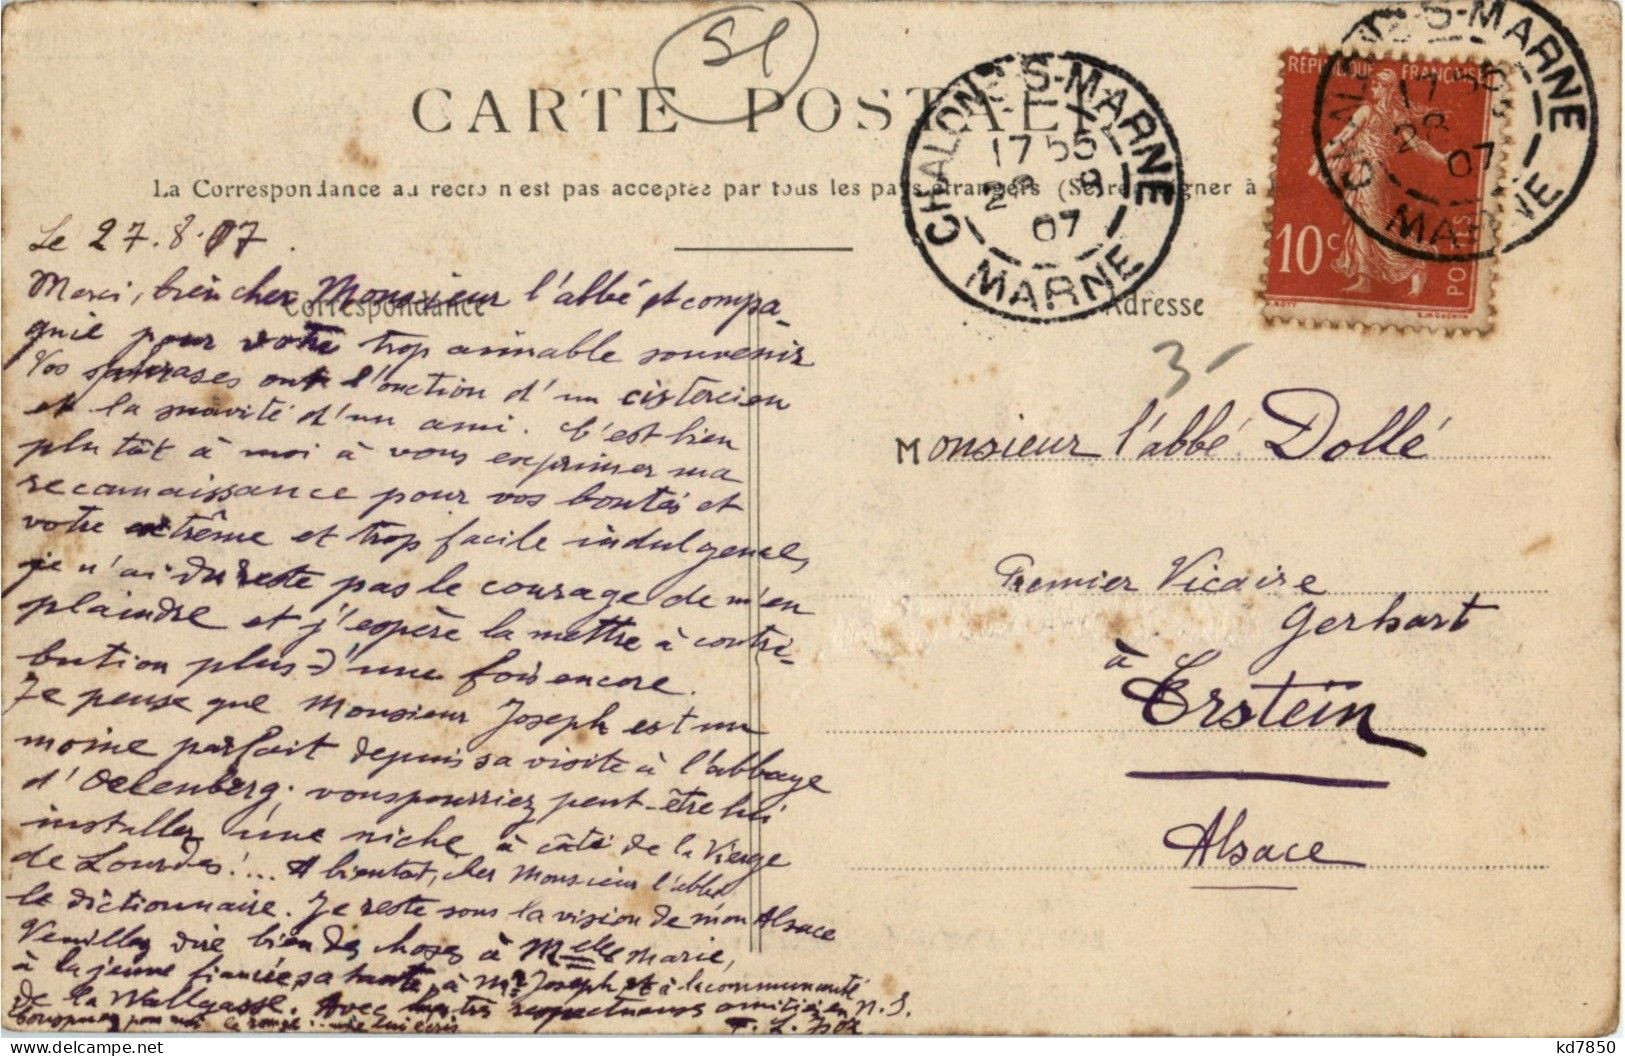 51
CARTE POSTALE
La Correspondance au recto n'est pas acceptée par tous les pays étrangers (Se renseigner à
CHALONS-S-MARNE
17 55
28 8
07
MARNE
CHALONS-S-MARNE
17 55
28 8
07
MARNE
RÉPUBLIQUE FRANÇAISE
10 c
POSTES
Correspondance
Adresse
3-
Le 27.8.07.
Merci, bien cher Monsieur l'abbé et compa-
gnie pour votre trop aimable souvenir
Vos phrases ont l'onction d'un cistercien
et la suavité d'un ami. C'est bien
plutôt à moi à vous exprimer ma
reconnaissance pour vos bontés et
votre extrême et trop facile indulgence,
je n'ai du reste pas le courage de m'en
plaindre et j'espère la mettre à contri-
bution plus d'une fois encore.
Je pense que Monsieur Joseph est un
moine parfait depuis sa visite à l'abbaye
d'Oelenberg; vous pourriez peut-être lui
installer une niche à côté de la Vierge
de Lourdes!... A bientot, cher Monsieur l'abbé,
le dictionnaire. Je reste sous la vision de mon Alsace
Veuillez dire bien des choses à Melle Marie,
à la jeune fiancée, sa tante, à Mr Joseph et à la communauté
de la Wallgasse. Avec respectueuses amitiés en N. S.
Monsieur l'abbé Dollé
Premier Vicaire
Gerhart
à
Erstein
Alsace
kd7850